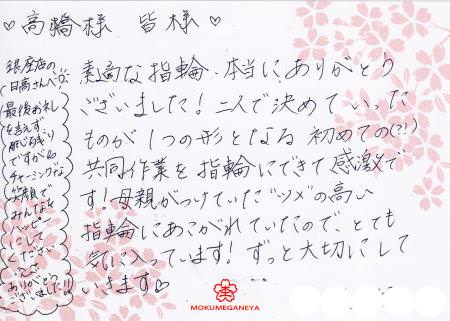 ♡高橋様 皆様♡
素適な指輪、本当に、ありがとう
ございました!二人で決めていった
ものが1つの形となる初めての(?!)
共同作業を指輪にできて感激で
す!母親がつけていた"ツメ"の高い
指輪にあこがれていたので、とても
気に入っています!ずっと大切にして
いきます♡
銀座店の
日高さんへ♡
最後お礼
を言えず
ですが
チャーミングな
笑顔で
みんなを
ハッピー
にして
ください
ありがとう
ございました!!
MOKUMEGANEYA